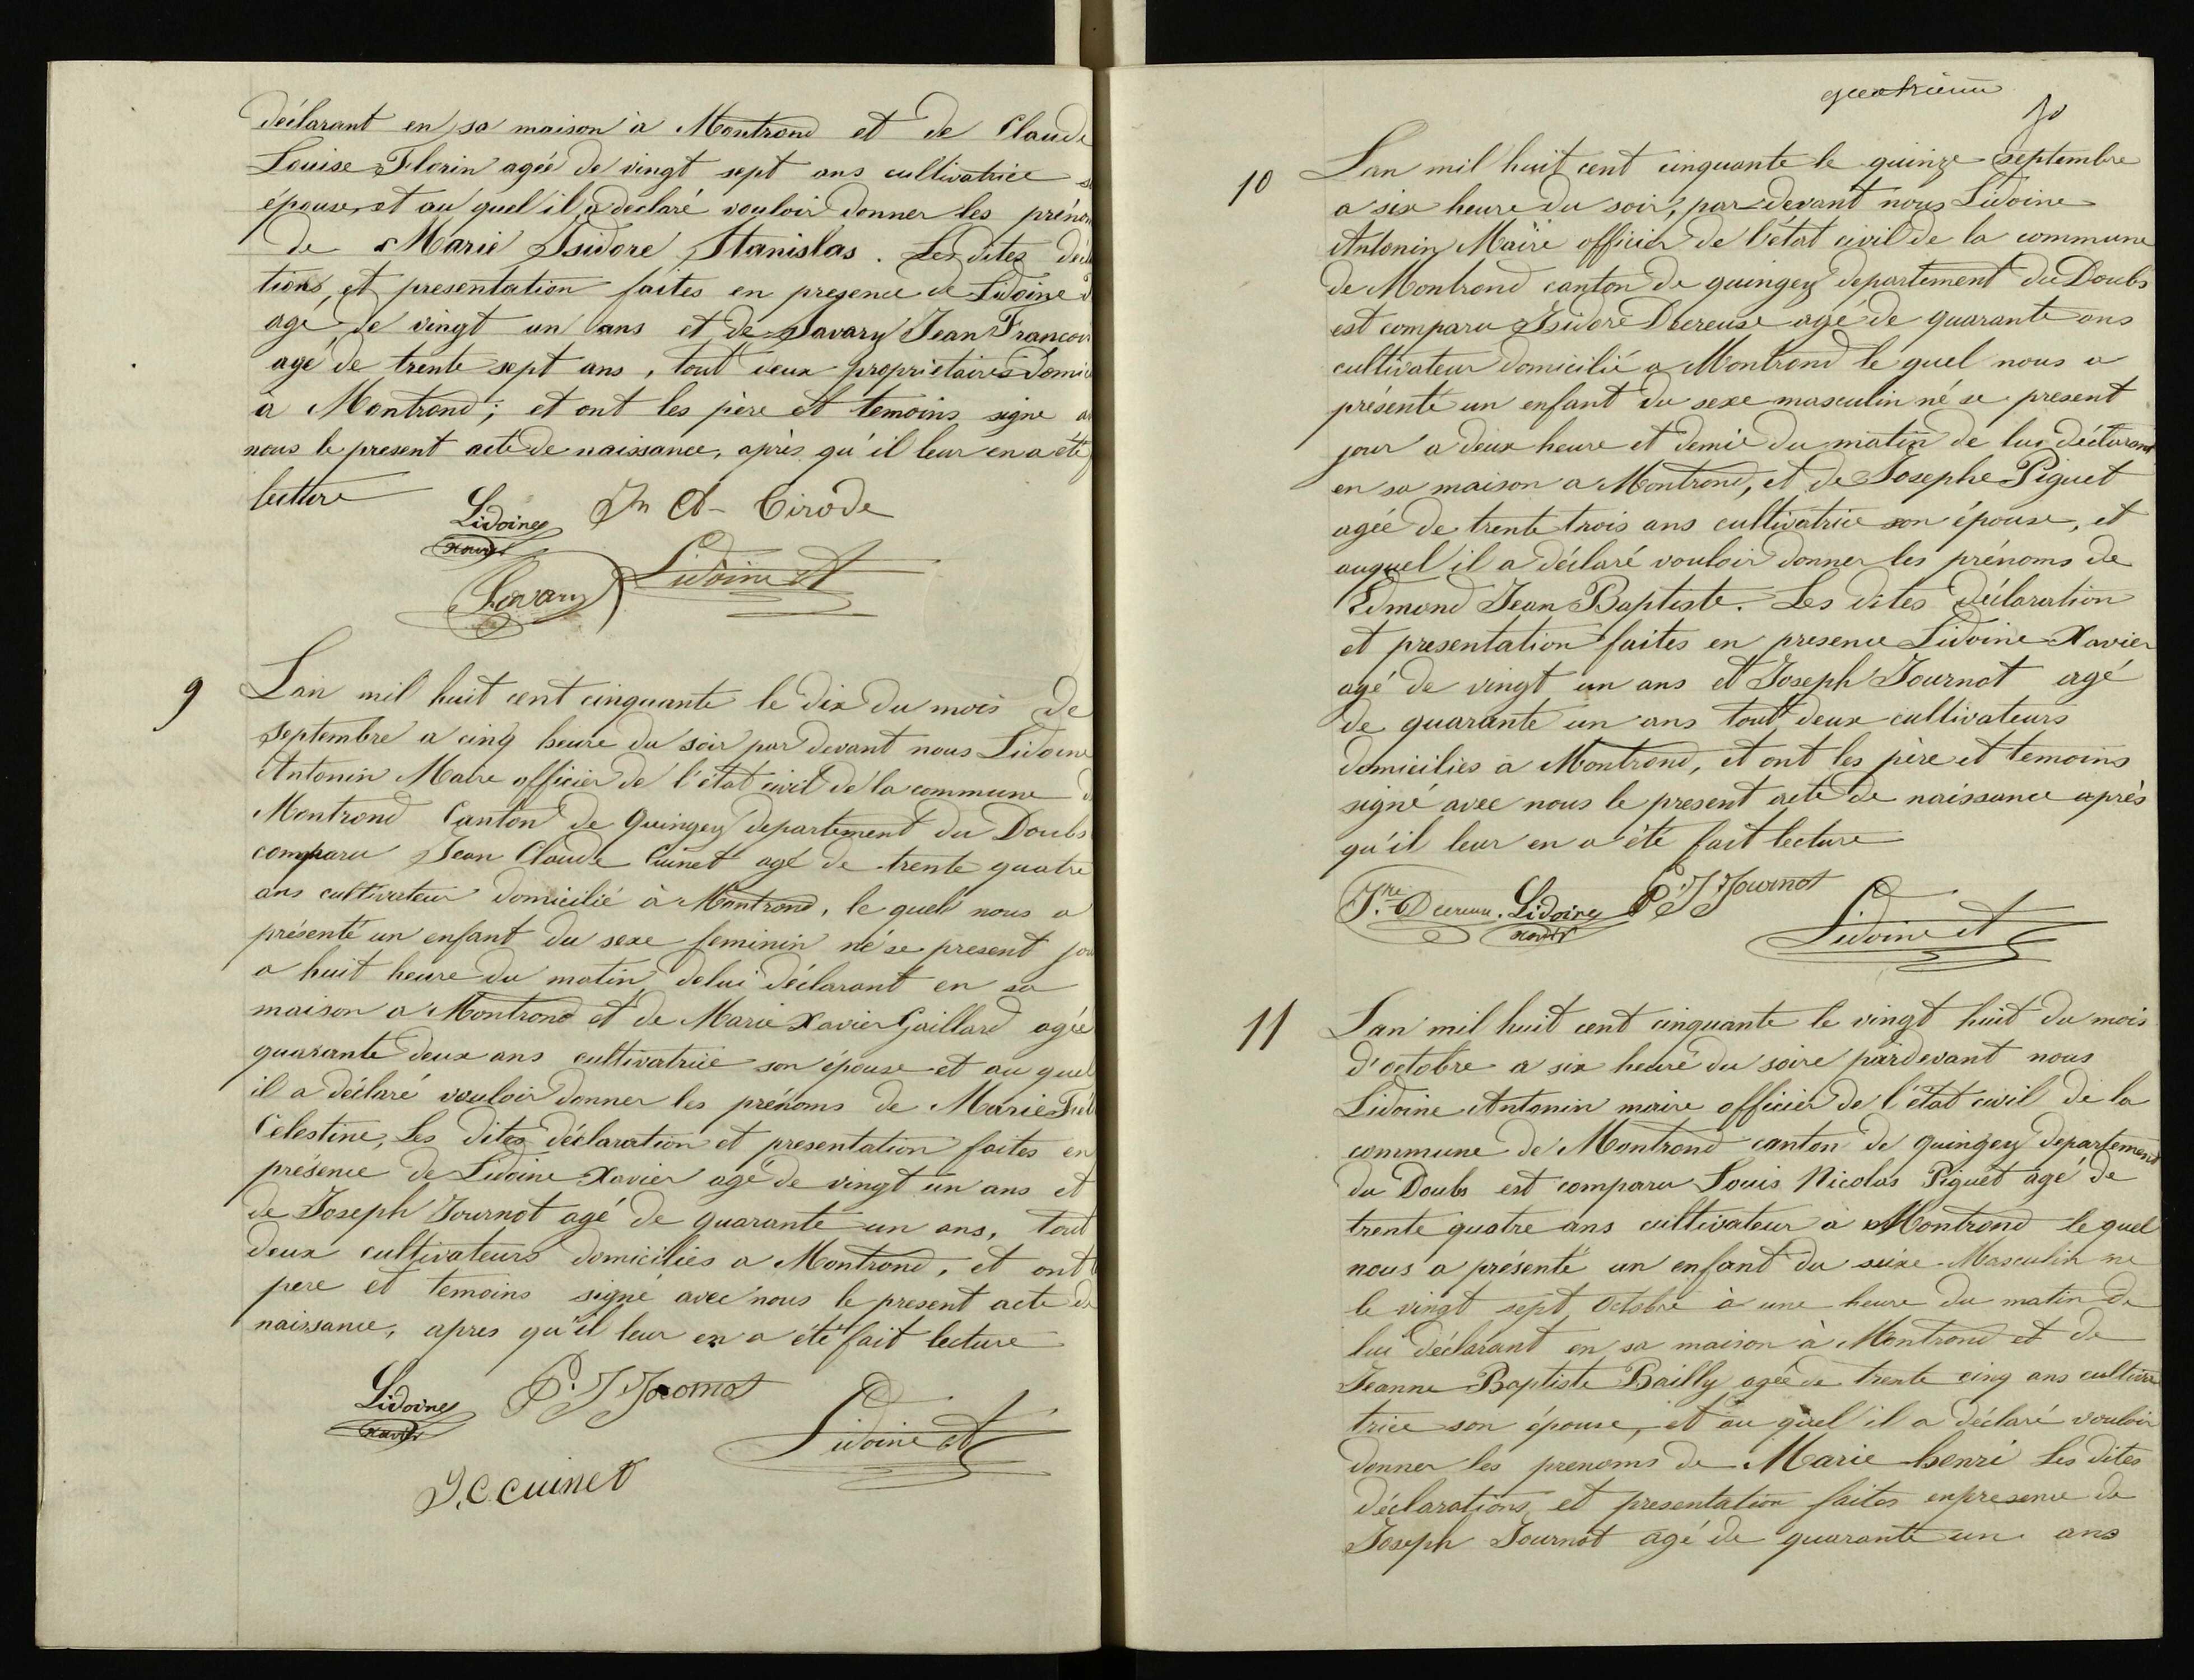 déclarant en sa maison à Montrond et de Claude
Louise Florin agée de vingt sept ans cultivatrice
épouse, et au quel il a declaré vouloir donner les prénom
de Marie Isidore Stanislas. Les dites décl
tions, et presentation faites en presence de Lidoine
agé de vingt un ans et de Savary Jean Francois
agé de trente sept ans, tout deux propriétaires domic
à Montrond; et ont les père et temoins signe
nous le present acte de naissance, après qu'il leur en a été
lecture
Lidoine Xavier
Cirode
Savary
Lidoine A
9
L'an mil huit cent cinquante le dix du mois de
septembre a cinq heure du soir par devant nous Lidoine
Antonin Maire officier de l'état civil de la commune
Montrond Canton de Quingey departement du Doubs
comparu Jean Claude Cuinet agé de trente quatre
ans cultivateur domicilié à Montrond, le quel nous a
présenté un enfant du sexe feminin né se present jou
a huit heure du matin de lui déclarant en sa
maison a Montrond et de Marie Xavier Gaillard agée
quarante deux ans cultivatrice son épouse et au quel
il a déclaré vouloir donner les prénoms de Marie
Celestine, Les dites déclaration et presentation faites en
présence de Lidoine Xavier agé de vingt un ans et
de Joseph Journot agé de quarante un ans, tout
deux cultivateurs domiciliés a Montrond, et ont
pere et temoins signé avec nous le present acte de
naissance, apres qu'il leur en a été fait lecture
Lidoine Xavier
P. J Journot
Lidoine A
J. C. Cuinet
quatrième
10
L'an mil huit cent cinquante le quinze septembre
a six heure du soir, par devant nous Lidoine
Antonin Maire officier de l'état civil de la commune
de Montrond canton de quingey departement du Doubs
est comparu Isidore Decreuse age de quarante ans
cultivateur domicilié a Montrond le quel nous a
présenté un enfant du sexe masculin né se present
jour a deux heure et demie du matin de lui déclarant
en sa maison a Montrond, et de Josephe Piguet
agée de trente trois ans cultivatrice son épouse, et
auquel il a déclaré vouloir donner les prénoms de
Edmond Jean Baptiste. Les dites déclaration
et presentation faites en presence Lidoine Xavier
agé de vingt un ans et Joseph Journot agé
de quarante un ans tout deux cultivateurs
domiciliés a Montrond, et ont les père et temoins
signé avec nous le present acte de naissance après
qu'il leur en a été fait lecture
Decreuse. Lidoine Xavier
P. J Journot
Lidoine A
11
L'an mil huit cent cinquante le vingt huit du mois
d'octobre a six heure du soire pardevant nous
Lidoine Antonin maire officier de l'état civil de la
commune de Montrond canton de quingey departement
du Doubs est comparu Louis Nicolas Piguet agé de
trente quatre ans cultivateur à Montrond le quel
nous a présenté un enfant du seixe Masculin ne
le vingt sept Octobre à une heure du matin de
lui déclarant en sa maison à Montrond et de
Jeanne Baptiste Bailly agée de trente cinq ans cultiva
trice son épouse, et au quel il a déclaré vouloir
donner les prenoms de Marie henri Les dites
déclarations et presentation faites enpresence de
Joseph Journot agé de quarante un ans